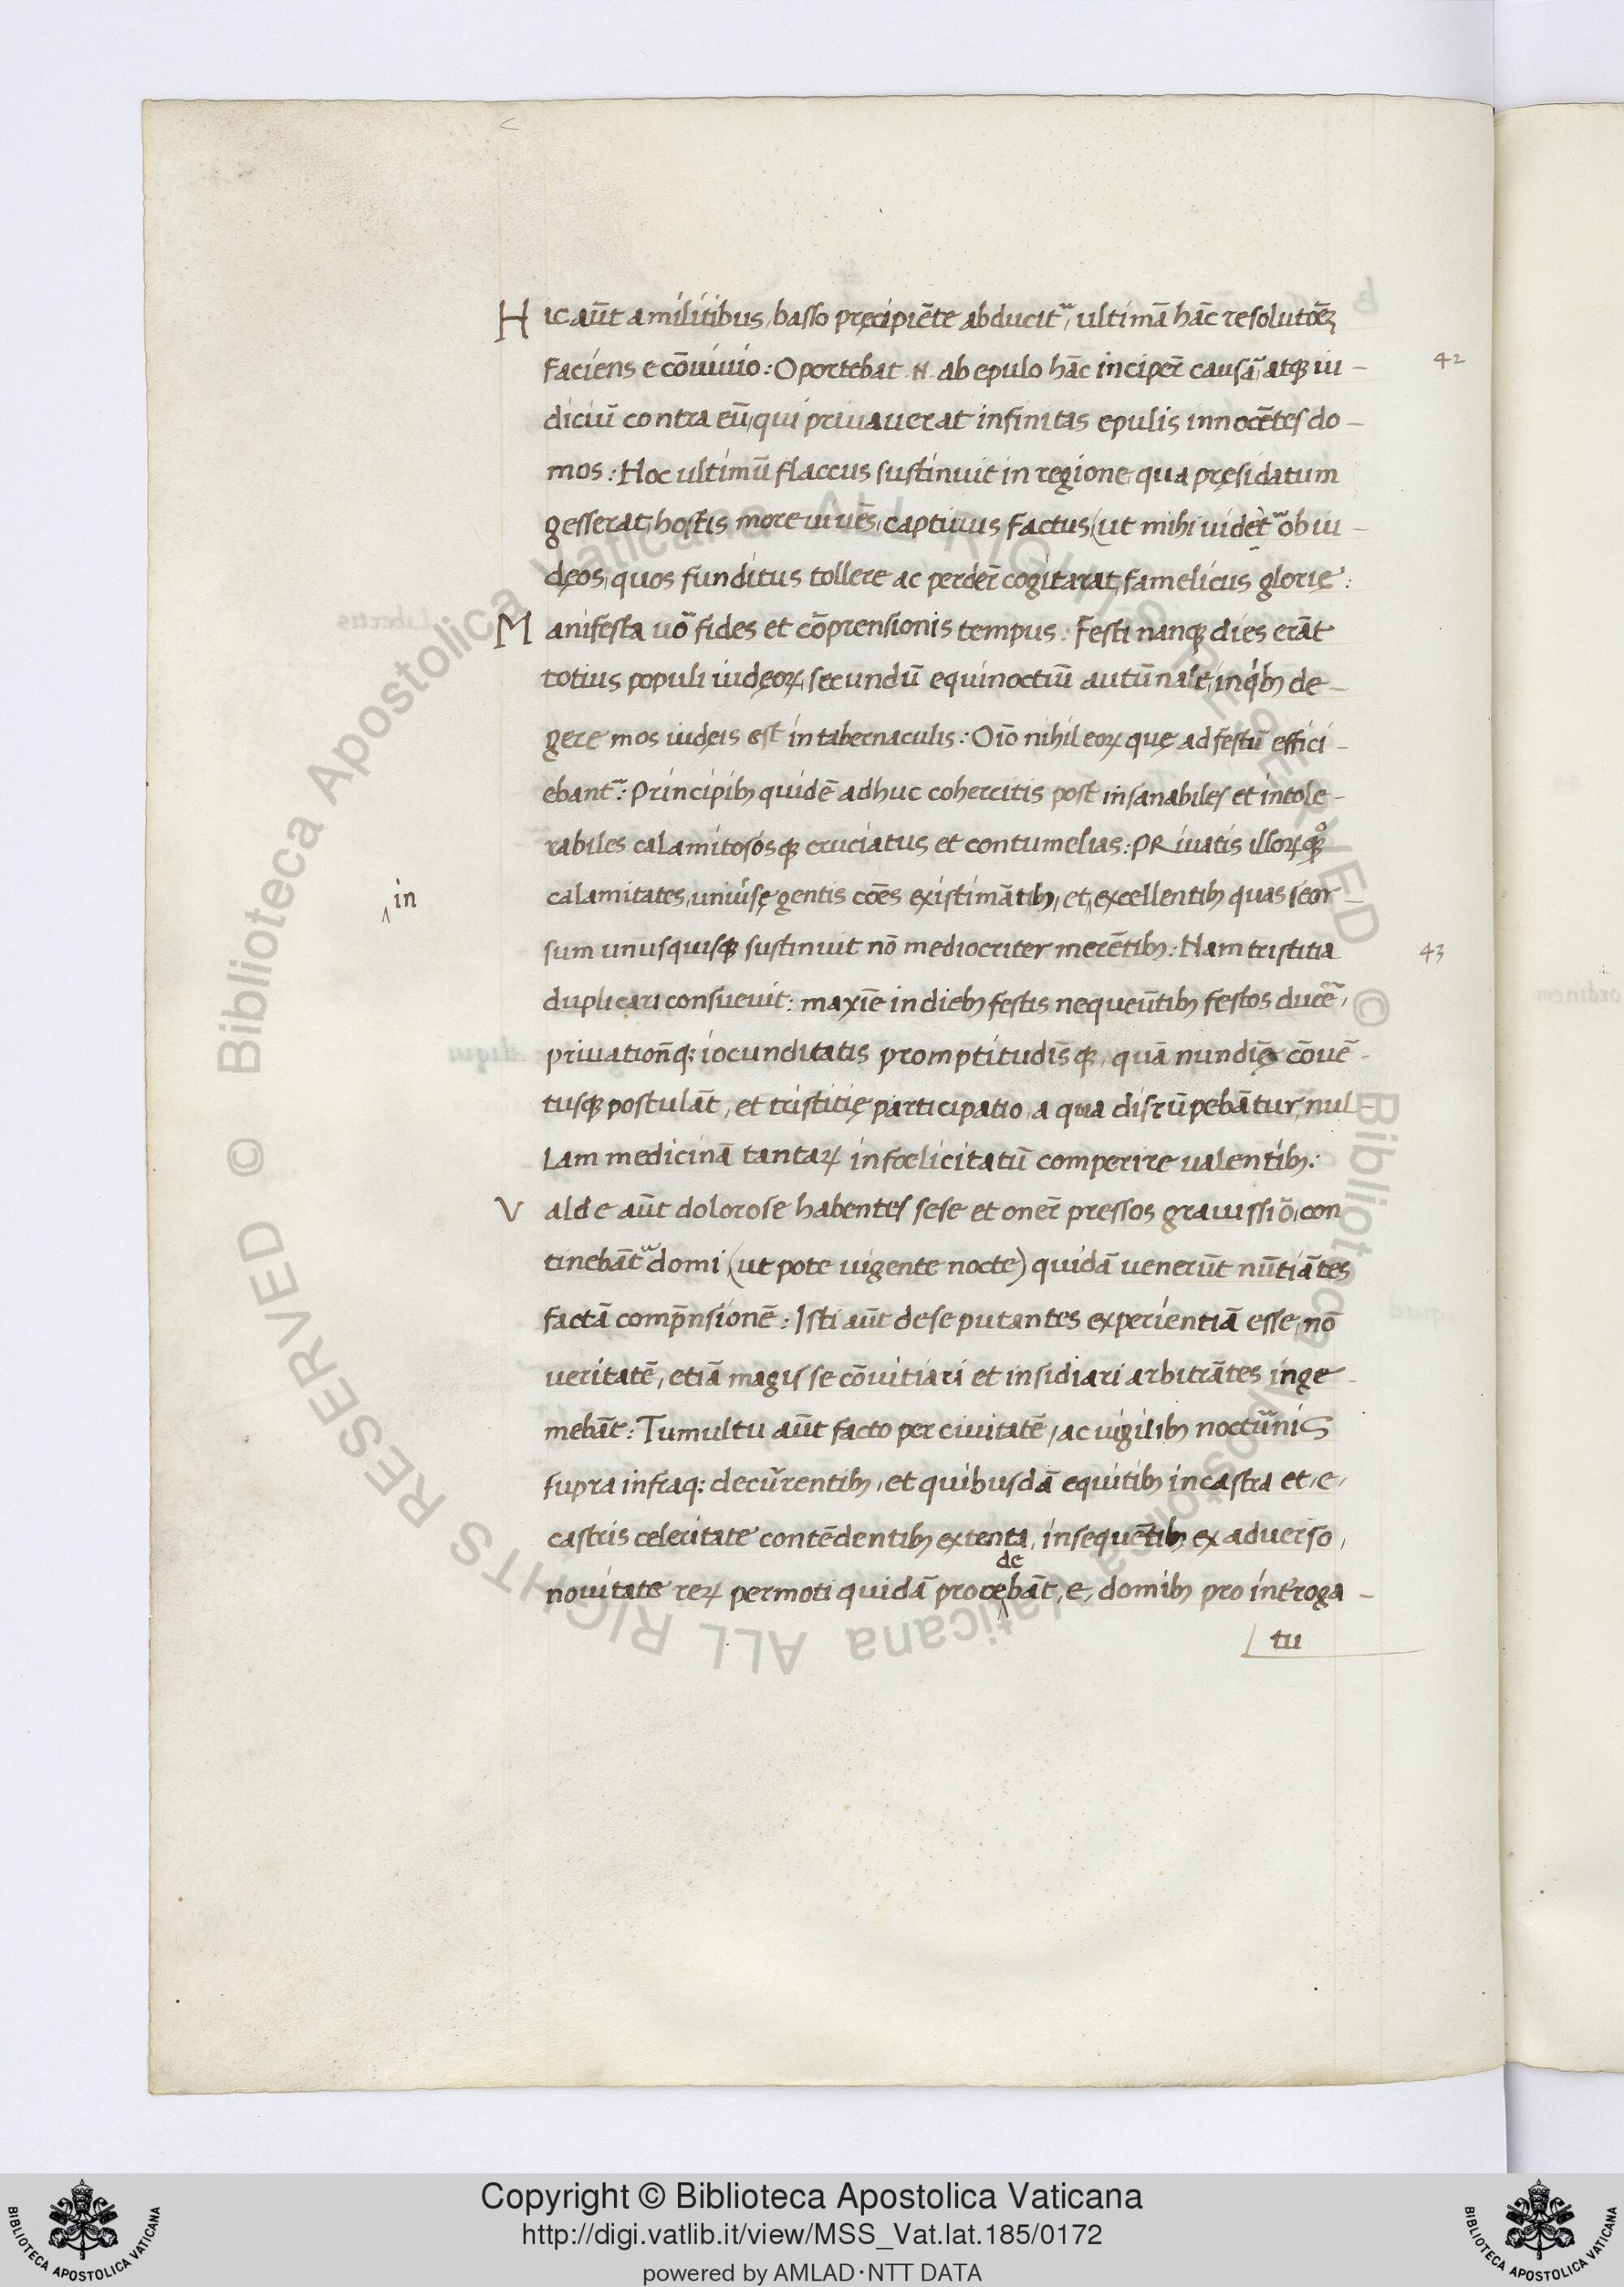 Hic aūt a militibus, basso pręcipiēte abducit᷑, ultimā hāc resolutōeꝫ
faciens e cōuiuio: Oportebat .N. ab epulo hāc inciper̄ causā, atqꝫ iu-
42
diciū contra eū, qui priuauerat infinitas epulis innocētes do-
mos: Hoc ultimū flaccus sustinuit in regione, qua pręsidatum
gesserat, hostis more uiuēs, captiuus factus, (ut mihi uidet᷑ ob iu-
dęos, quos funditus tollere ac perder̄ cogitarat, famelicus glorię:
Manifesta uō fides et cōprensionis tempus: Festi nanqꝫ dies erāt
totius populi iudęoꝝ, secundū equinoctiū autūnale, in qibꝫ de-
gere mos iudęis est in tabernaculis: Oīo nihil eoꝝ quę ad festū effici-
ebant᷑: Principibꝫ quidē adhuc cohercitis post insanabiles et intole-
rabiles calamitososqꝫ cruciatus et contumelias: PRiuatis illoꝝ qꝫo
calamitates, uniūsę gentis cōes existimātibꝫ, et ‸ excellentibꝫ quas seor-
‸ in
sum unusquisqꝫ sustinuit nō mediocriter merētibꝫ: Nam tristitia
43
duplicari consueuit: maxīe in diebꝫ festis nequeūtibꝫ festos ducē,
priuationqꝫ: iocunditatis promptitudīsqꝫ, quā nundię cōuē-
tusqꝫ postulāt, et tristitię participatio, a qua disrūpebātur, nul-
lam medicinā tantaꝝ infoelicitatū comperire ualentibꝫ:
Valde aūt dolorose habentes sese et oner̄ pressos grauissīo, con
tinebāt᷑ domi (ut pote uigente nocte) quidā uenerūt nūtiātes
factā comp̄nsionē: Isti aūt de se putantes experientiā esse, nō
ueritatē, etiā magis se cōuitiari et insidiari arbitrātes inge-
mebāt: Tumultu aūt facto per ciuitatē, ac uigilibꝫ noctūnis
supra infraq: decūrentibꝫ, et quibusdā equitibꝫ in castra et, e,
castris celeritate contēdentibꝫ extenta, insequētibꝫ ex aduerso,
de
nouitate reꝝ permoti quidā proce‸bāt, e, domibꝫ pro int̄roga-
tu
Copyright © Biblioteca Apostolica Vaticana
http://digi.vatlib.it/view/MSS_Vat.lat.185/0172
powered by AMLAD·NTT DATA